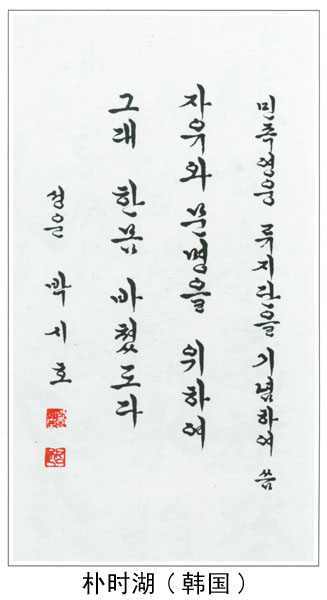 민족영웅 류지단을 기념하여 씀
자유와 문명을 위하여
그대 한몸 바쳤도다
박시호
朴时湖（韩国）